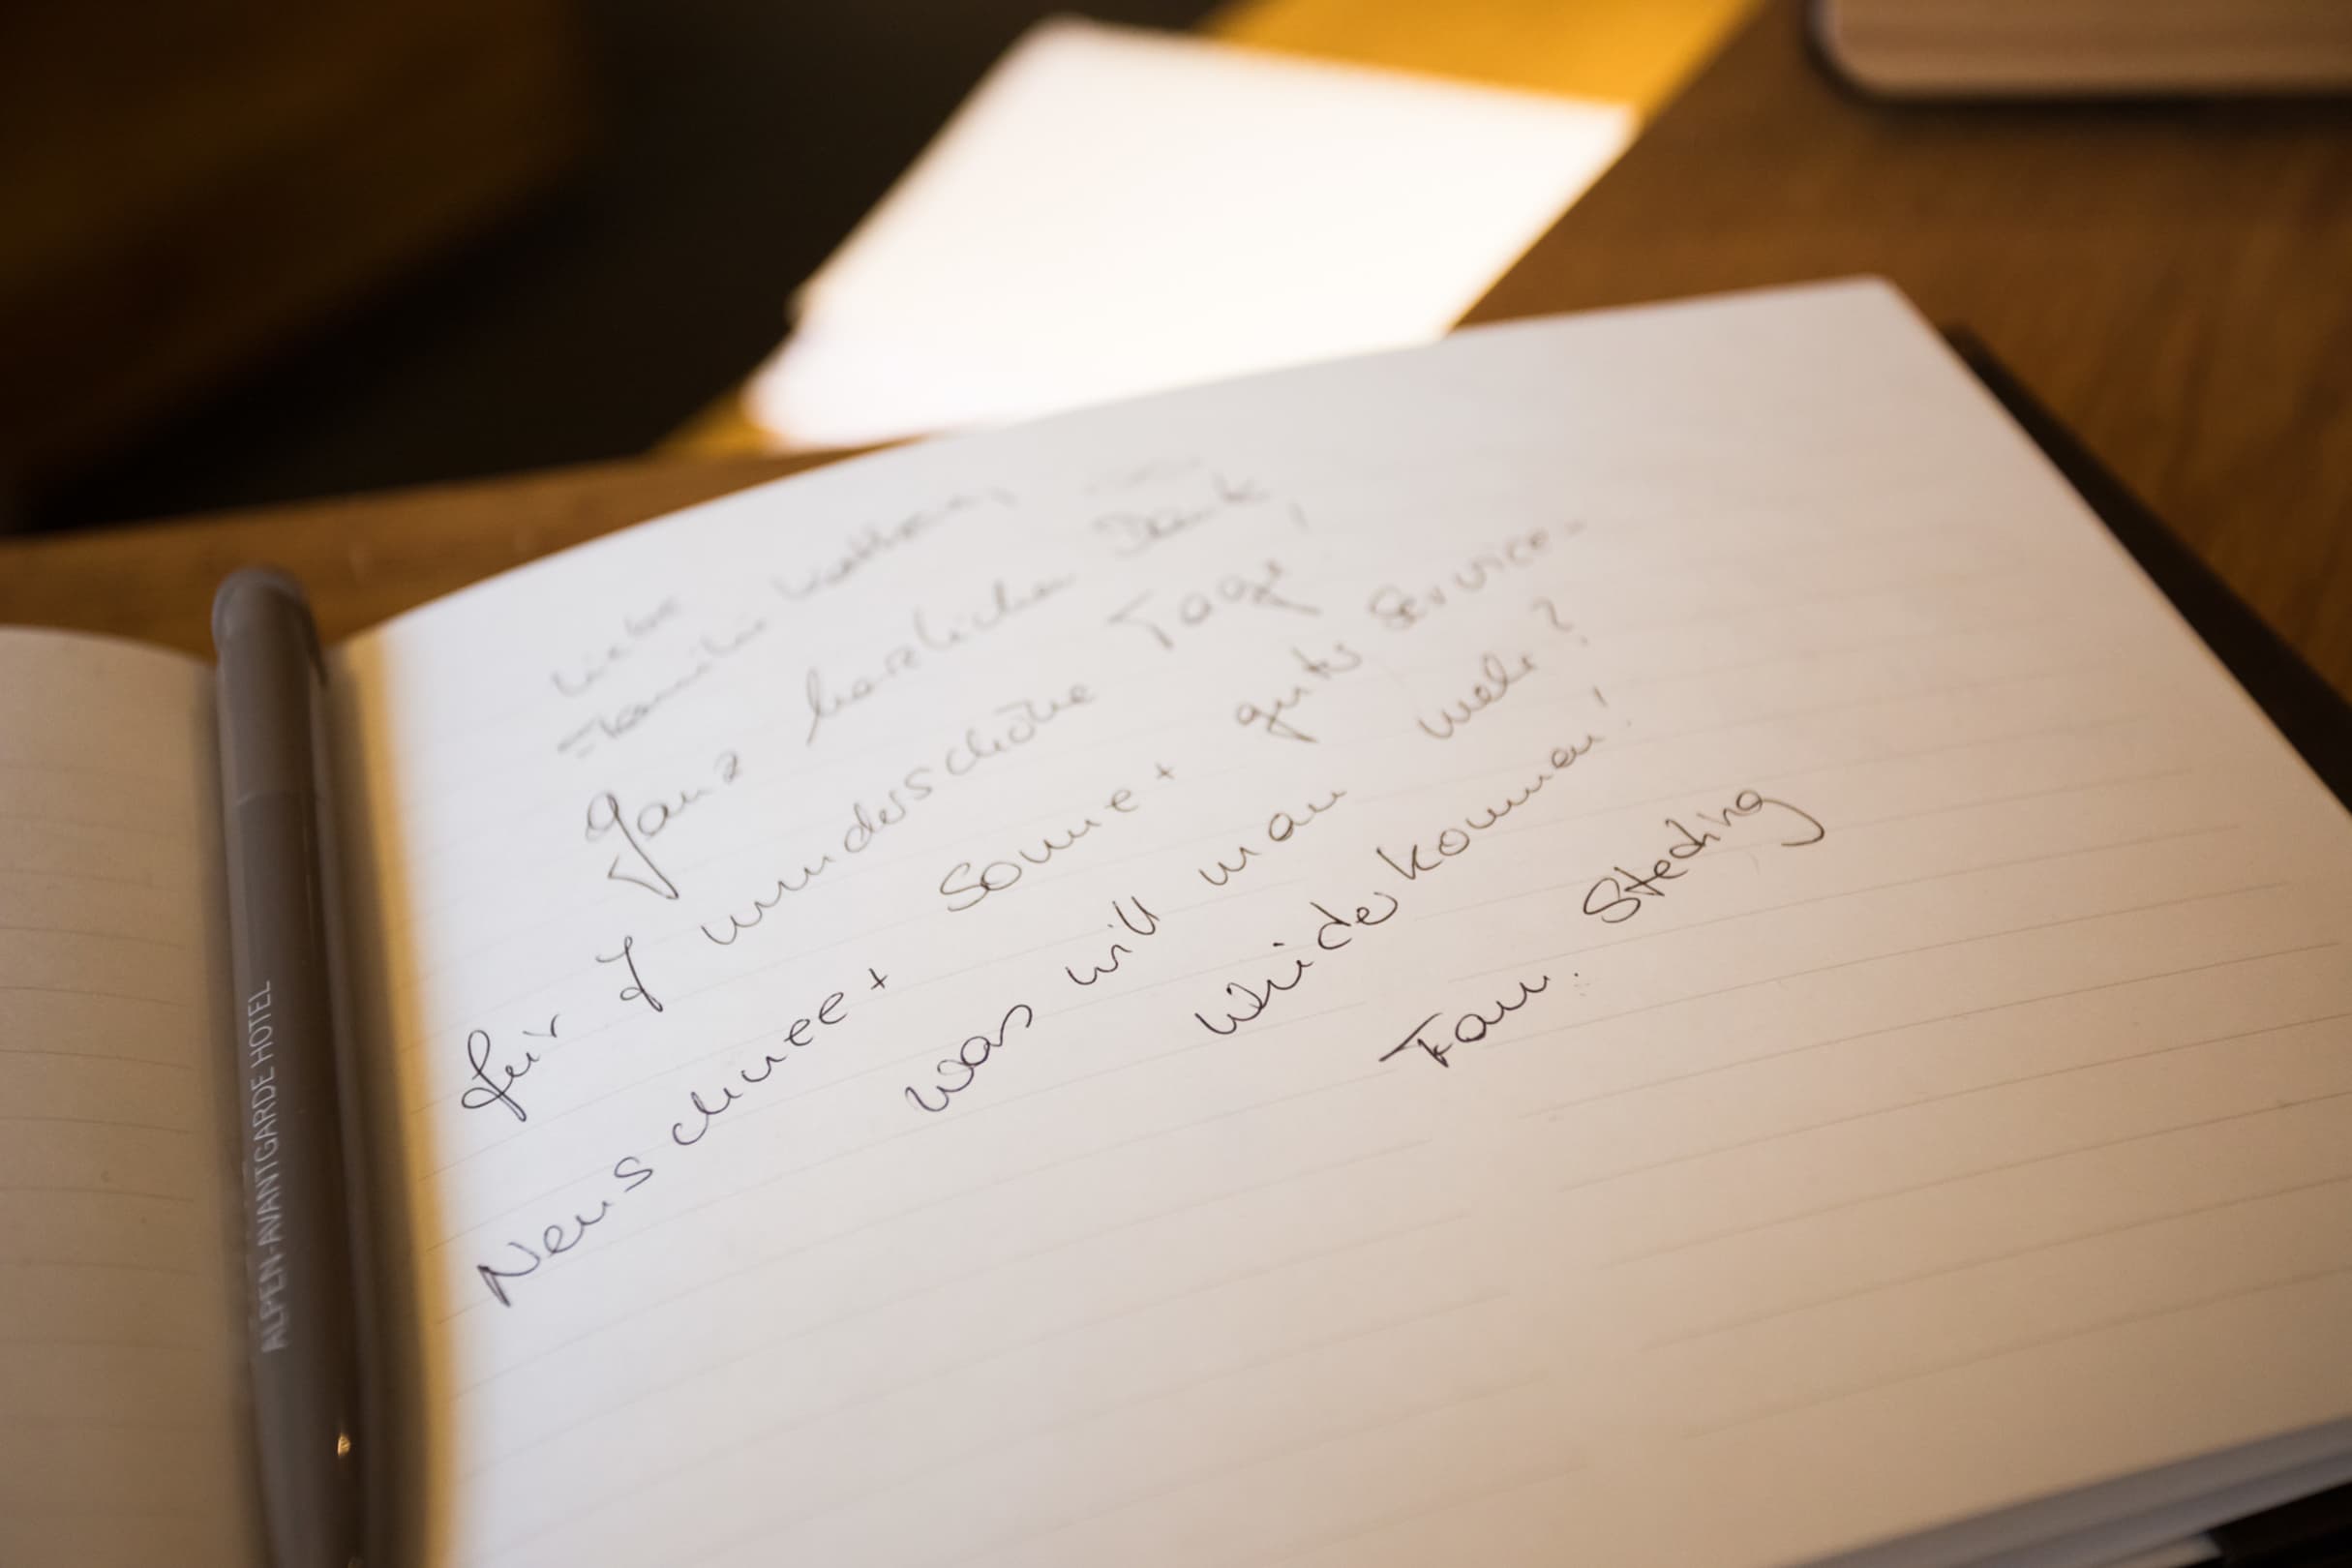 Liebe
Familie
ganz herzlichen Dank
für 7 wunderschöne Tage,
Neuschnee + Sonne + guter Service -
was will man mehr?
Wiederkommen!
Fam. Steding
ALPEN-AVANTGARDE HOTEL